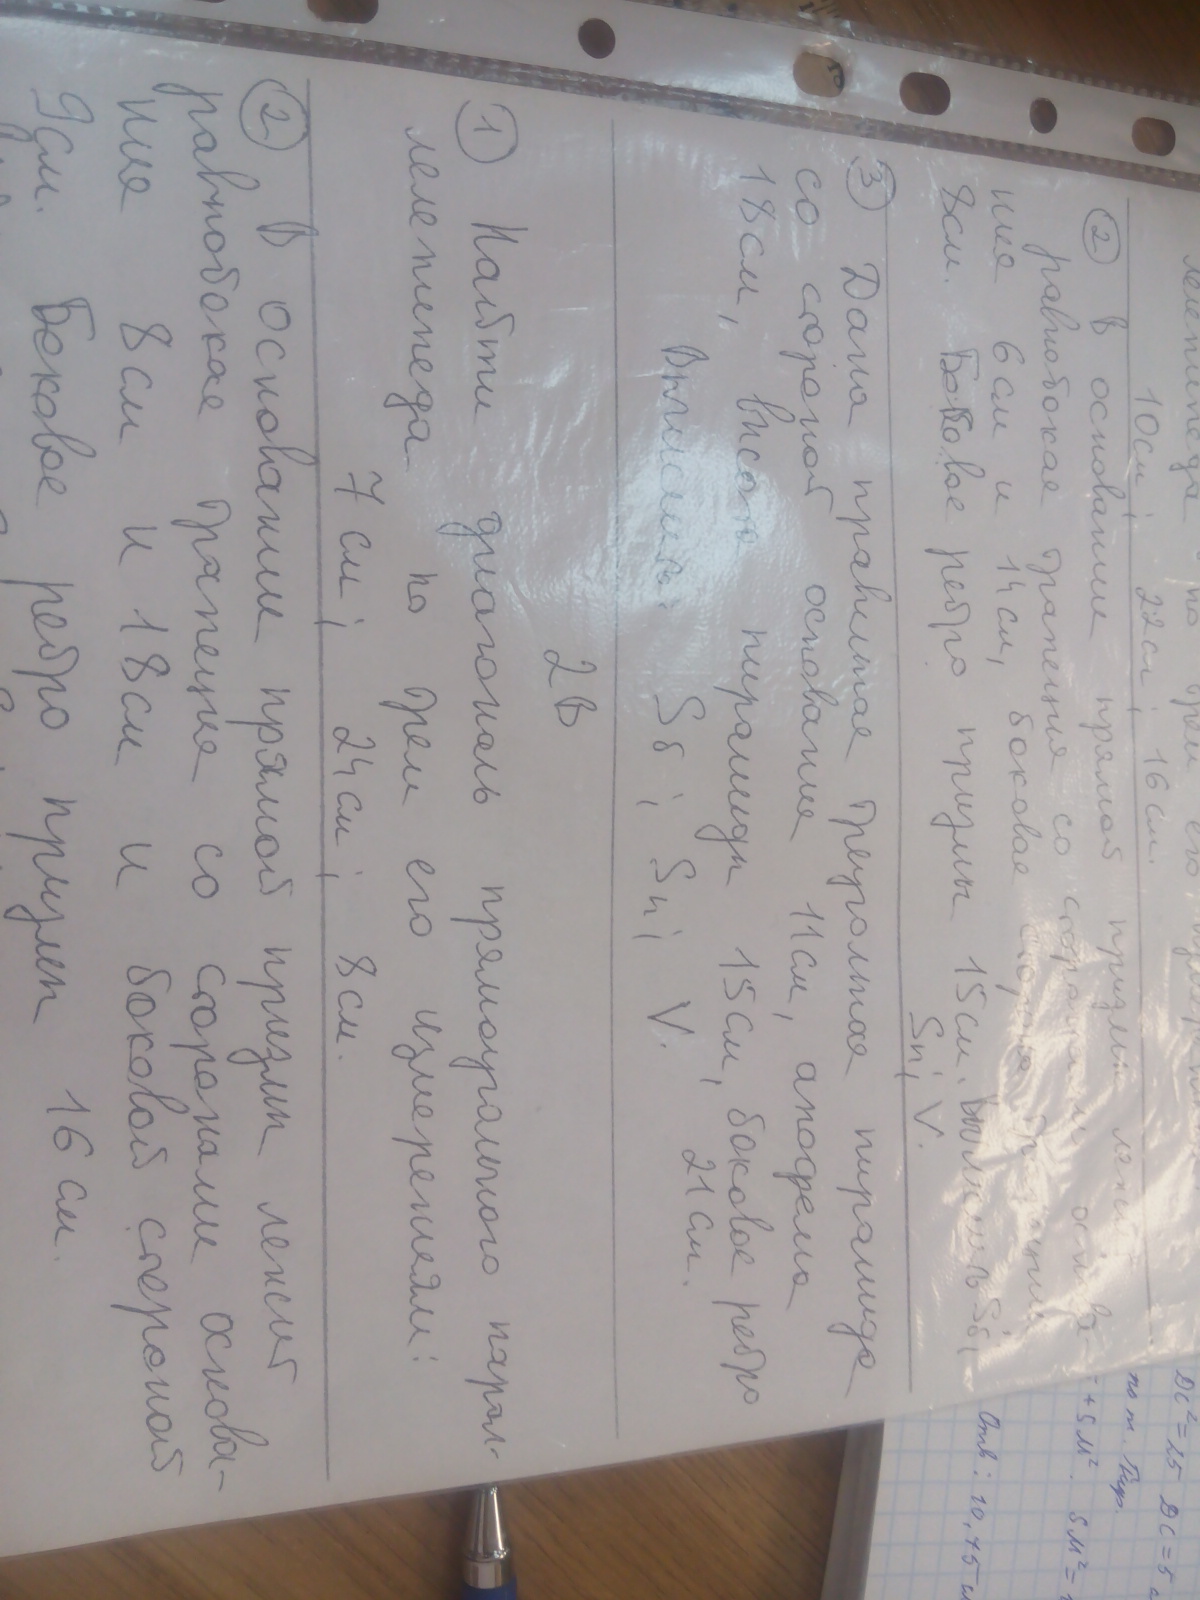 лепипеда по трем его
10см; 22см; 16см.
② В основании прямой призмы лежит
равнобокая трапеция со сторонами основа-
ния 6см и 14см, боковая сторона трапеции
8см. Боковое ребро призмы 15см. Вычислить Sб;
Sп; V.
③ Дана правильная треугольная пирамида
со стороной основания 11см, апофема
18см, высота пирамиды 15см, боковое ребро
21см.
Вычислить: Sб; Sп; V.
2В
① Найти диагональ прямоугольного парал-
лелепипеда по трем его измерениям:
7см; 24см; 8см.
② В основании прямой призмы лежит
равнобокая трапеция со сторонами основа-
ния 8см и 18см и боковой стороной
9см. Боковое ребро призмы 16см.
DC²=25 DC=5
по т. Пир.
+SM². SM²=
Отв: 10,75